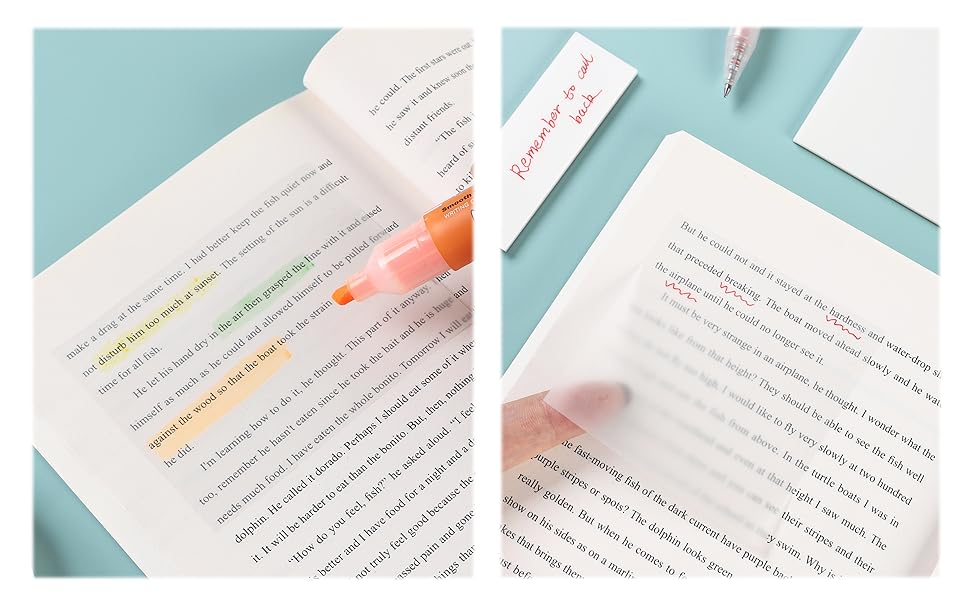 he could. The first stars were out
he saw it and knew soon th
distant friends.
"The fish
heard of s
to kil
make a drag at the same time. I had better keep the fish quiet now and
not disturb him too much at sunset. The setting of the sun is a difficult
time for all fish.
He let his hand dry in the air then grasped the line with it and eased
himself as much as he could and allowed himself to be pulled forward
against the wood so that the boat took the strain
he did.
I'm learning how to do it, he thought. This part of it anyway. Then
too, remember he hasn't eaten since he took the bait and he is huge and
needs much food. I have eaten the whole bonito. Tomorrow I will eat
dolphin. He called it dorado. Perhaps I should eat some of it when
it. It will be harder to eat than the bonito. But, then, nothing
"How do you feel, fish?" he asked aloud. "I feel
s better and I have food for a night and a d
not truly feel good because the
assed pain and gone
kings than
Smooth
WRITING
Remember to call
back
But he could not and it stayed at the hardness and water-drop si
that preceded breaking. The boat moved ahead slowly and he wat
the airplane until he could no longer see it.
It must be very strange in an airplane, he thought. I wonder what the
looks like from that height? They should be able to see the fish well
do not fly too high. I would like to fly very slowly at two hundred
the fish from above. In the turtle boats I was in
masthead and even at that height I saw much. The
and you can see their stripes and their
y swim. Why is i
the fast-moving fish of the dark current have purple bac
purple stripes or spots? The dolphin looks green
really golden. But when he comes to fe
show on his sides as on a marlin
kes that brings them
ust befor